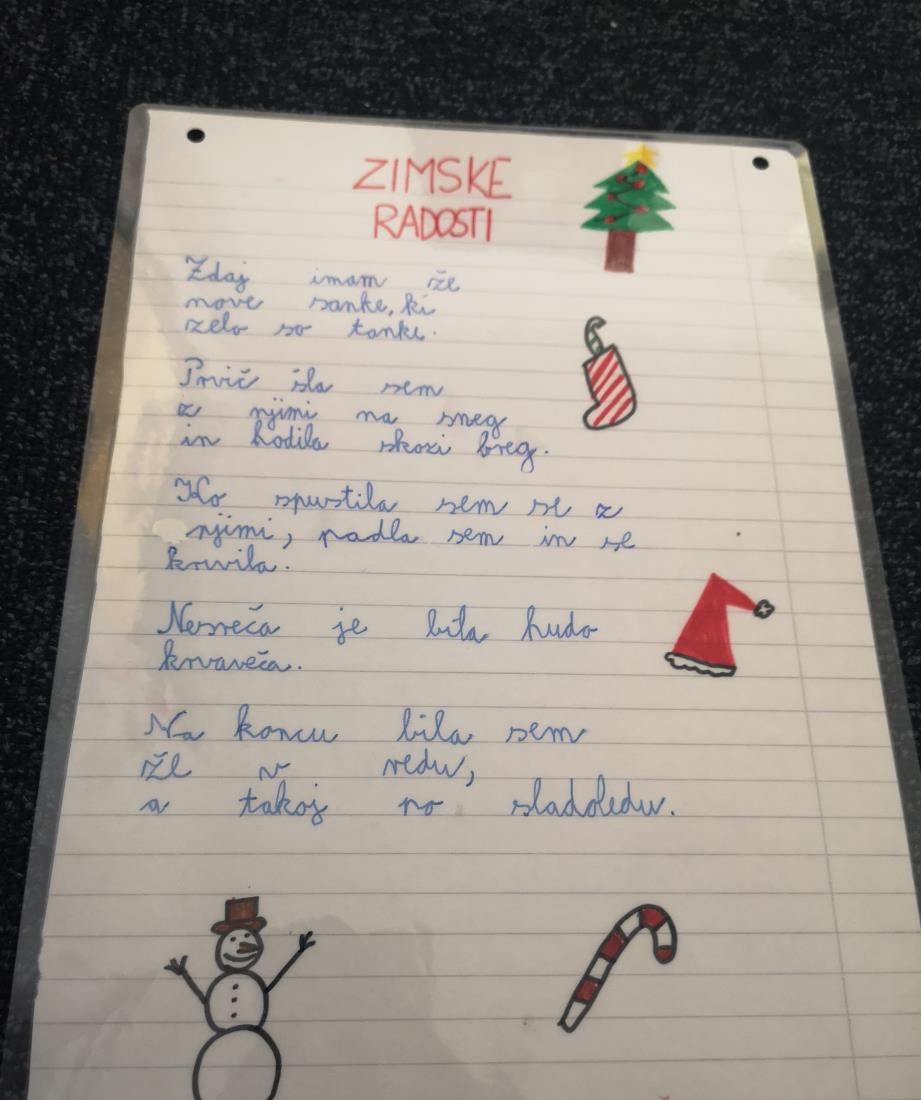 ZIMSKE
RADOSTI
Zdaj imam že
nove sanke, ki
zelo so tanke.
Prvič šla sem
z njimi na sneg
in hodila skozi breg.
Ko spustila sem se z
njimi, padla sem in se
krvila.
Nesreča je bila hudo
krvaveča.
Na koncu bila sem
že v redu,
a takoj po sladoledu.